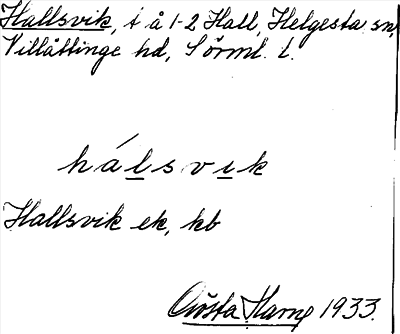 Hallsvik, t å 1-2 Hall, Helgesta sn,
Villåttinge hd, Sörml. l.
hálsvik
Hallsvik ek, kb
Gösta Harne 1933.